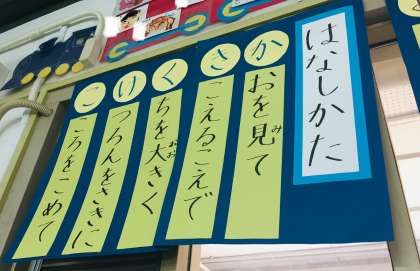 はなしかた
かおを見て
み
きこえるこえで
くちを大きく
おお
けつろんをさきに
こころをこめて